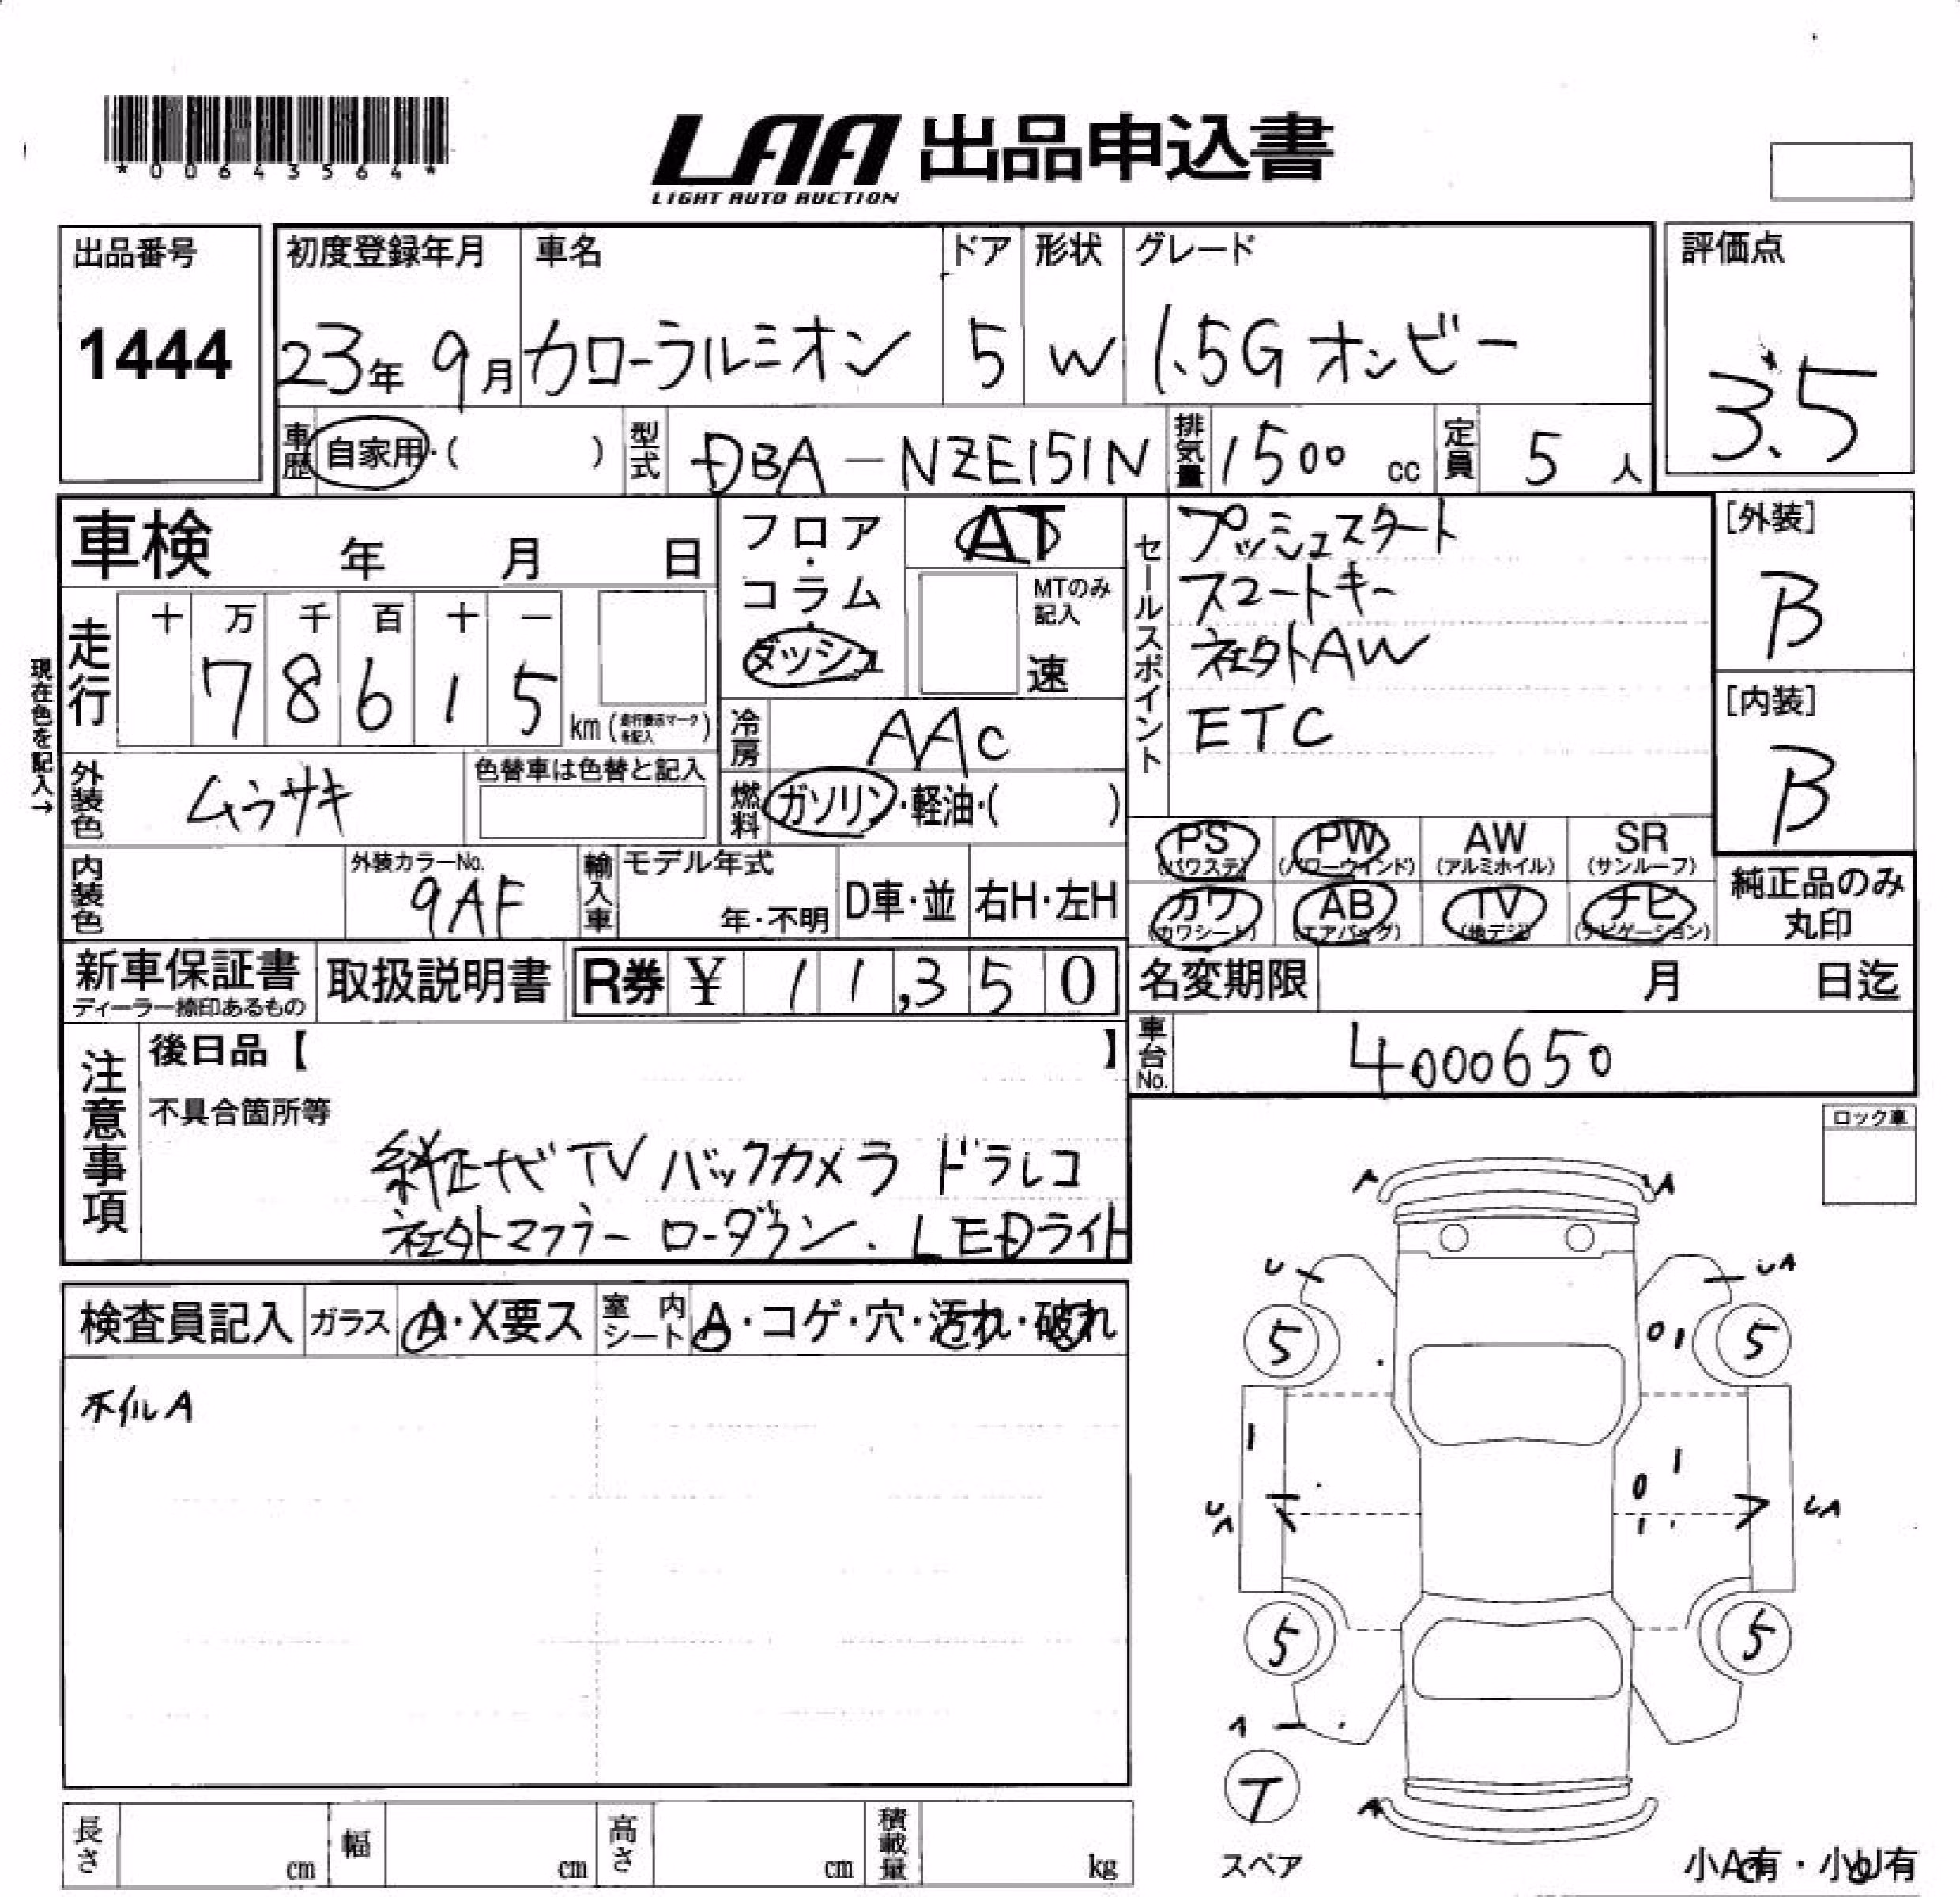 *00643564*
LAA 出品申込書
LIGHT AUTO AUCTION
出品番号
1444
初度登録年月 車名 ドア 形状 グレード
23年 9月 カローラルミオン 5 W 1.5G オンビー
評価点
3.5
車歴 自家用・( ) 型式 DBA-NZE151N 排気量 1500 cc 定員 5 人
車検 年 月 日
走行 十 万 千 百 十 一
7 8 6 1 5 km (走行表示マークを記入)
現在色を記入→
外装色 ムラサキ 色替車は色替と記入
内装色 外装カラーNo. 9AF
輸入車 モデル年式 年・不明 D車・並 右H・左H
フロア・コラム・ダッシュ
AT
MTのみ記入
速
冷房 AAC
燃料 ガソリン・軽油・( )
セールスポイント
プッシュスタート
スマートキー
社外AW
ETC
[外装]
B
[内装]
B
PS (パワステ) PW (パワーウインド) AW (アルミホイル) SR (サンルーフ)
カワ (カワシート) AB (エアバッグ) TV (地デジ) ナビ (ナビゲーション)
純正品のみ丸印
新車保証書 ディーラー捺印あるもの 取扱説明書 R券 ¥ 11,350
名変期限 月 日迄
車台No. 4000650
注意事項
後日品【 】
不具合箇所等
純正ナビ TV バックカメラ ドラレコ
社外マフラー ローダウン. LEDライト
ロック車
検査員記入 ガラス A・X要ス 室内シート A・コゲ・穴・汚れ・破れ
ホイルA
A A
U UA
5 5
UA UA
5 5
A
T
スペア
A
小A有・小U有
長さ cm 幅 cm 高さ cm 積載量 kg